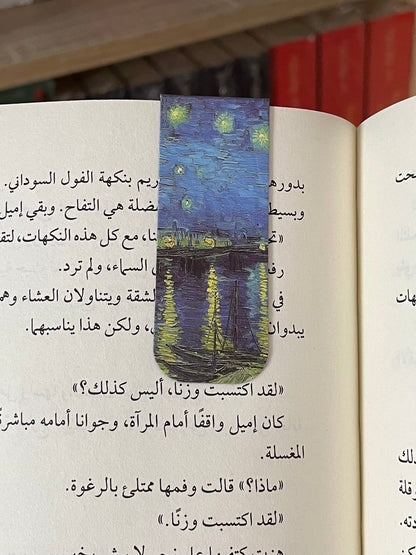 بدورها
ريم بنكهة الفول السوداني.
وبسيط
ضلة هي التفاح. وبقي إميل
نا، مع كل هذه النكهات، لتق
السماء، ولم ترد.
في
لشقة ويتناولان العشاء وهم
يبدوان
، ولكن هذا يناسبهما.
«لقد اكتسبت وزنًا، أليس كذلك؟»
كان إميل واقفًا أمام المرآة، وجوانا أمامه مباشرةً
المغسلة.
«ماذا؟» قالت وفمها ممتلئ بالرغوة.
«لقد اكتسبت وزنًا.»